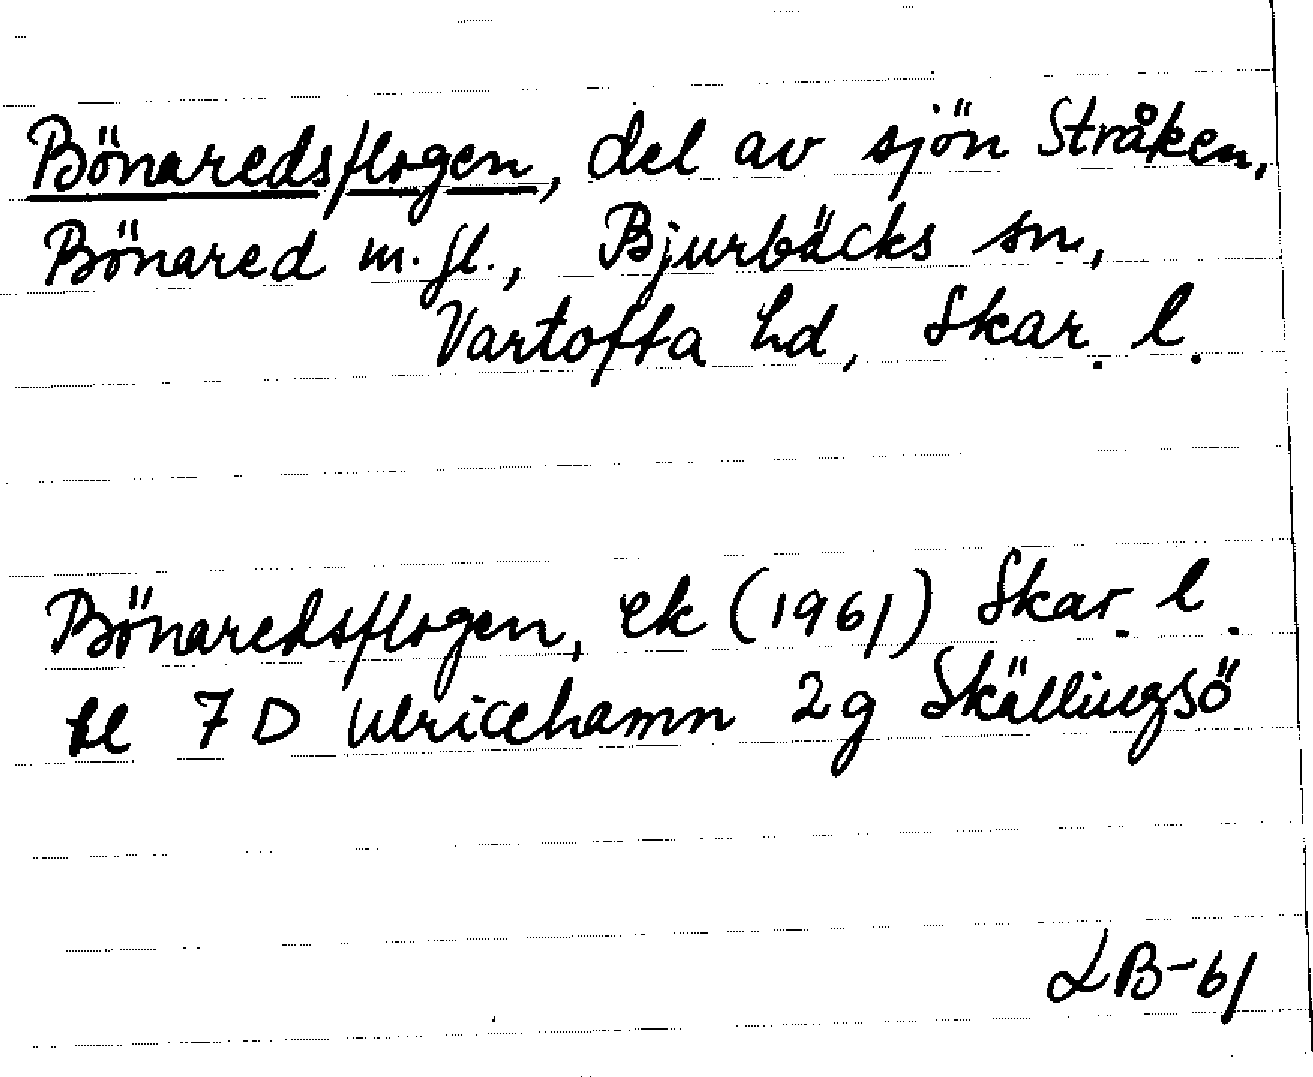 Bönaredsflogen, del av sjön Stråken,
Bönared m.fl., Bjurbäcks sn,
Vartofta hd, Skar. l.
Bönaredsflogen, ek (1961) Skar. l.
bl 7D Ulricehamn 2g Skällingsö
LB-61